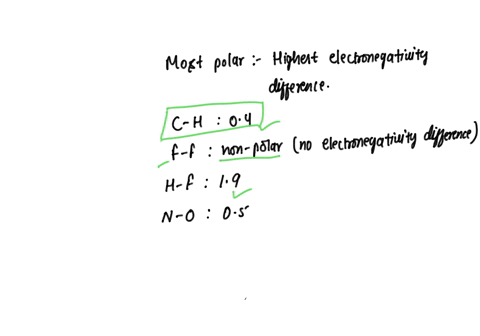 Most polar :- Highest electronegativity
difference.
C-H : 0.4
f-f : non-polar (no electronegativity difference)
H-f : 1.9
N-O : 0.5